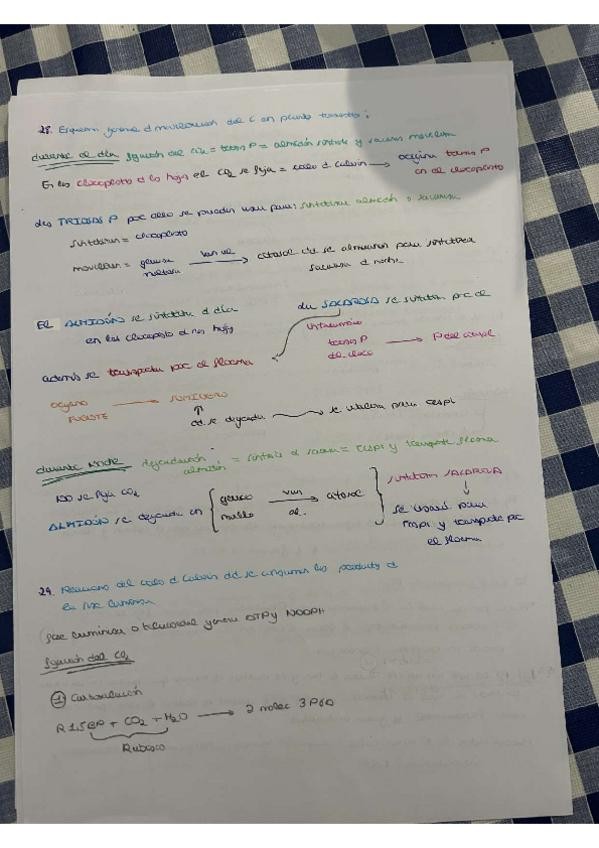 28. Esquema general d movilización del C en planta terrestre:
durante el día fijación del CO2 = triosas P = almidón sintetiza y sacarosa moviliza
En los cloroplastos d la hoja el CO2 se fija = ciclo d Calvin → origina triosas P
en el cloroplasto
las TRIOSAS P por ello se pueden usar para: sintetizar almidón o sacarosa
sintetizan = cloroplasto
movilizan = glucosa
maltosa
van al → citosol dd se almacenan para sintetizar
sacarosa d noche
El ALMIDÓN se sintetiza d día
en los cloroplasto d las hojas
la SACAROSA se sintetiza por el
triosas P → P del citosol
del cloro
además se transporta por el floema
órgano → SUMIDERO
FUENTE
dd se degrada → se utiliza para respi.
durante NOCHE degradación almidón = síntesis d sacarosa = respi y transporte floema
NO se fija CO2
ALMIDÓN se degrada en { glucosa
maltosa
van al → citosol }
sintetizan SACAROSA
↓
se usará para
respi y transporte por
el floema
29. Resumen del ciclo d Calvin dd se consumen los productos d
la fase luminosa
fase luminosa o tilacoidal genera ATP y NADPH
fijación del CO2
① Carboxilación
R1,5BP + CO2 + H2O → 2 molec 3PGA
Rubisco